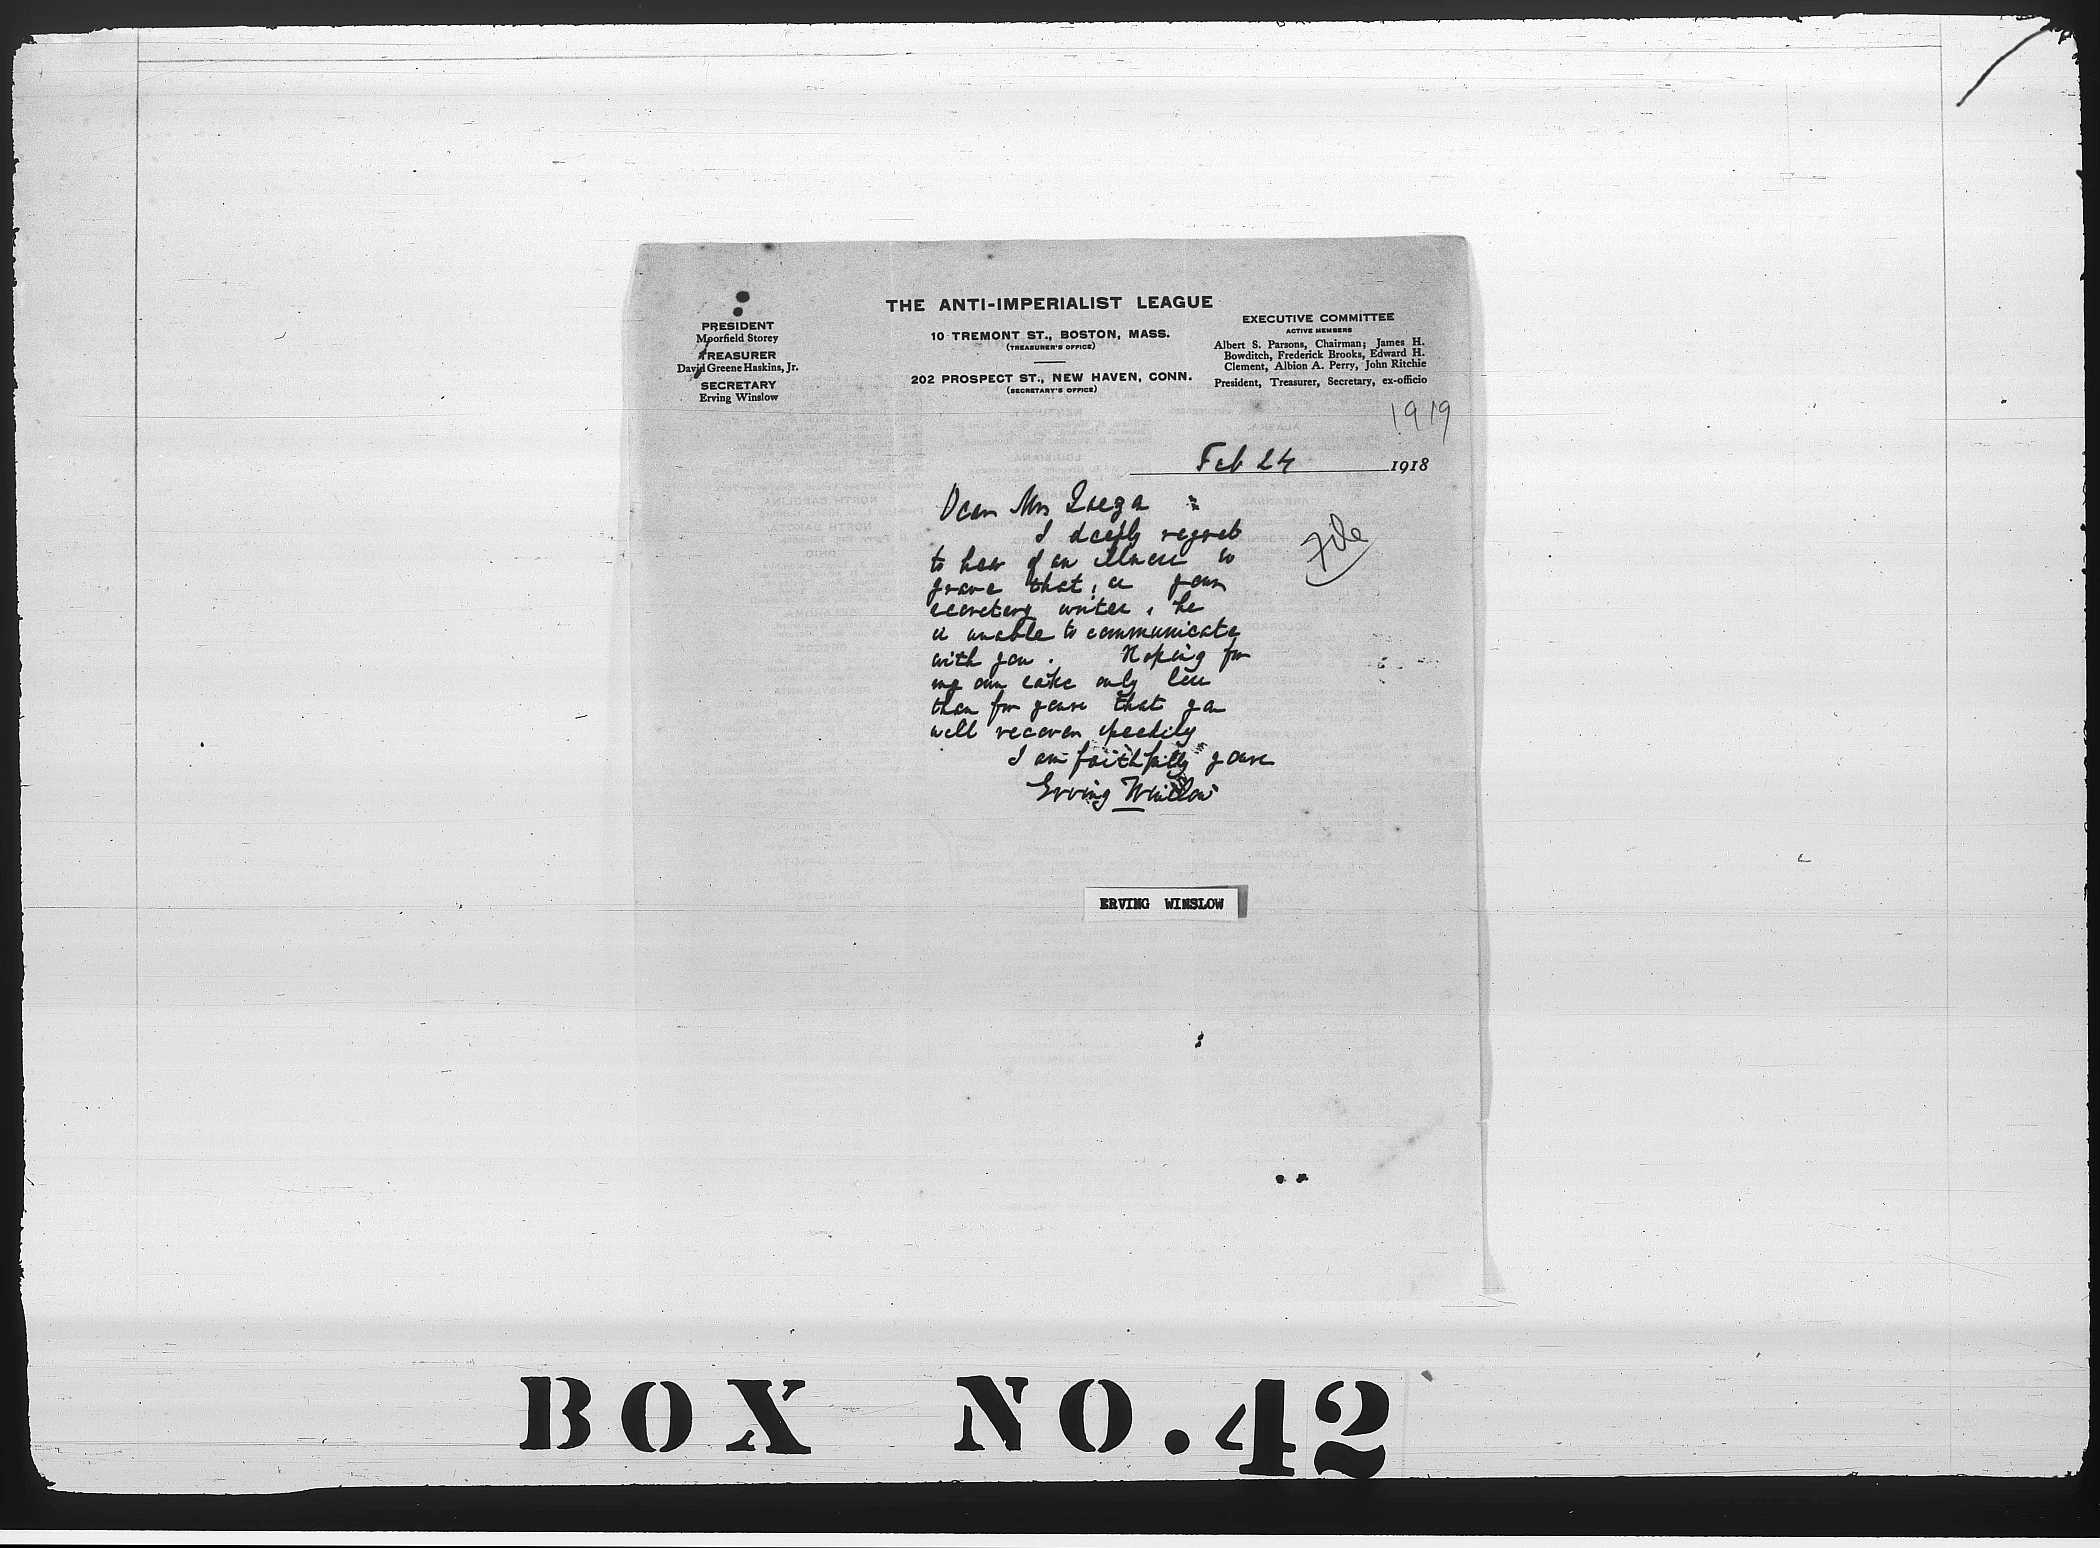 THE ANTI-IMPERIALIST LEAGUE
10 TREMONT ST., BOSTON, MASS.
(TREASURER'S OFFICE)
202 PROSPECT ST., NEW HAVEN, CONN.
(SECRETARY'S OFFICE)
PRESIDENT
Moorfield Storey
TREASURER
David Greene Haskins, Jr.
SECRETARY
Erving Winslow
EXECUTIVE COMMITTEE
ACTIVE MEMBERS
Albert S. Parsons, Chairman; James H.
Bowditch, Frederick Brooks, Edward H.
Clement, Albion A. Perry, John Ritchie
President, Treasurer, Secretary, ex-officio
1919
Feb 24 1918
Dear Mr
File
I deeply regret
to hear of an illness so
grave that, as your
secretary writes, he
is unable to communicate
with you. Hoping for
my own sake only less
than for yours that you
will recover speedily
I am faithfully yours
Erving Winslow
ERVING WINSLOW
BOX NO. 42